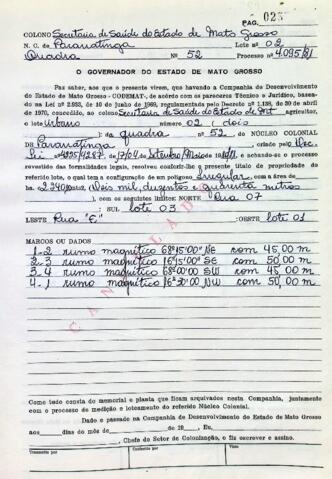 PAG. 023
COLONO Secretaria de Saúde do Estado de Mato Grosso
N. C. de Paranatinga Lote nº 02
Quadra Nº 52 Processo nº 4.095/81
O GOVERNADOR DO ESTADO DE MATO GROSSO
Faz saber, aos que o presente virem, que havendo a Companhia de Desenvolvimento
do Estado de Mato Grosso - CODEMAT-, de acôrdo com os pareceres Técnico e Jurídico, basea-
do na Lei nº 2.933, de 10 de junho de 1969, regulamentada pelo Decreto nº 1.138, de 30 de abril
de 1970, concedido, ao colono Secretaria de Saúde do Estado de MT agricultor,
o lote urbano número 02 ( dois
) da quadra nº 52 do NÚCLEO COLONIAL
DE Paranatinga criado pelo Dec.
Lei de 17/04 de Setembro/Maio de e achando-se o processo
revestido das formalidades legais, resolveu conferir-lhe o presente título de propriedade do
referido lote, o qual tem a configuração de um polígono Irregular com a área de
2.240 (Dois mil, duzentos e quarenta metros
), com os seguintes limites: NORTE Rua 07
; SUL lote 03
LESTE Rua "E" ;OESTE lote 01
MARCOS OU DADOS
1-2 rumo magnético 68º45'00" NE com 45,00 m
2-3 rumo magnético 16º45'00" SE com 50,00 m
3-4 rumo magnético 68º00'00 SW com 45,00 m
4-1 rumo magnético 16º30'00" NW com 50,00 m
CANCELADO
Como tudo consta do memorial e planta que ficam arquivados nesta Companhia, juntamente
com o processo de medição e loteamento do referido Núcleo Colonial.
Dado e passado na Companhia de Desenvolvimento do Estado de Mato Grosso
aos dias do mês de de 19 , Eu,
, Chefe do Setor de Colonização, o fiz escrever e assino.
Transcrito por Conferido por Visto